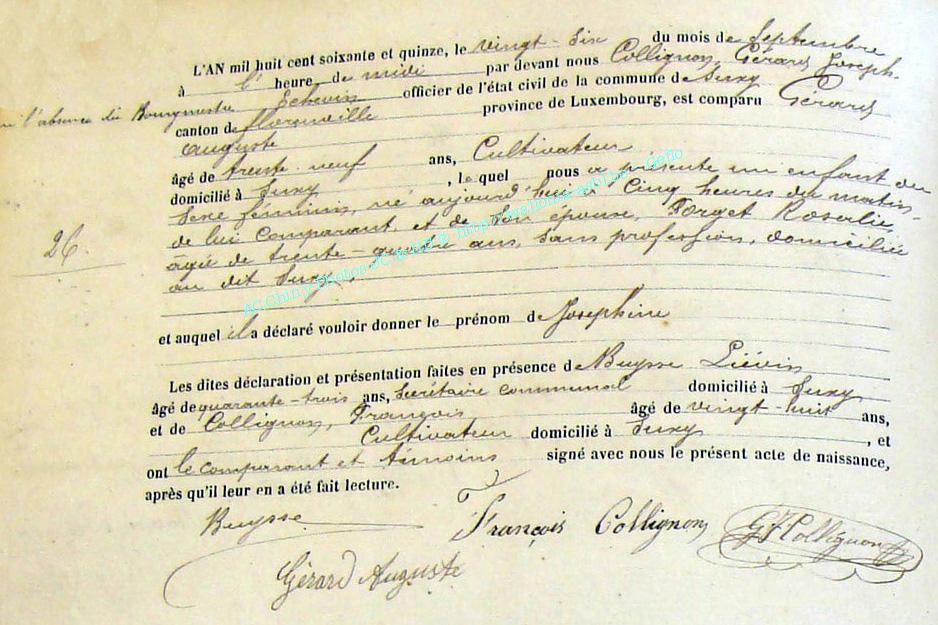 L'AN mil huit cent soixante et quinze, le vingt-six du mois de Septembre
à l' heure de midi par devant nous Collignon, Gérard Joseph.
en l'absence du Bourgmestre Echevin officier de l'état civil de la commune de Suxy
canton de Florenville province de Luxembourg, est comparu Gérard
Auguste
âgé de trente-neuf ans, Cultivateur
domicilié à Suxy, lequel nous a présenté un enfant du
sexe féminin, né aujourd'hui à Cinq heures du matin
de lui comparant, et de son épouse, Forget Rosalie,
26.
âgée de trente-quatre ans, sans profession, domiciliée
au dit Suxy,
AC Chiny
et auquel il a déclaré vouloir donner le prénom de Joséphine
Les dites déclaration et présentation faites en présence de Buysse Liévin
âgé de quarante-trois ans, Secrétaire communal domicilié à Suxy
et de Collignon, François âgé de vingt-huit ans,
Cultivateur domicilié à Suxy, et
ont le comparant et témoins signé avec nous le présent acte de naissance,
après qu'il leur en a été fait lecture.
Buysse François Collignon GJCollignon
Gérard Auguste